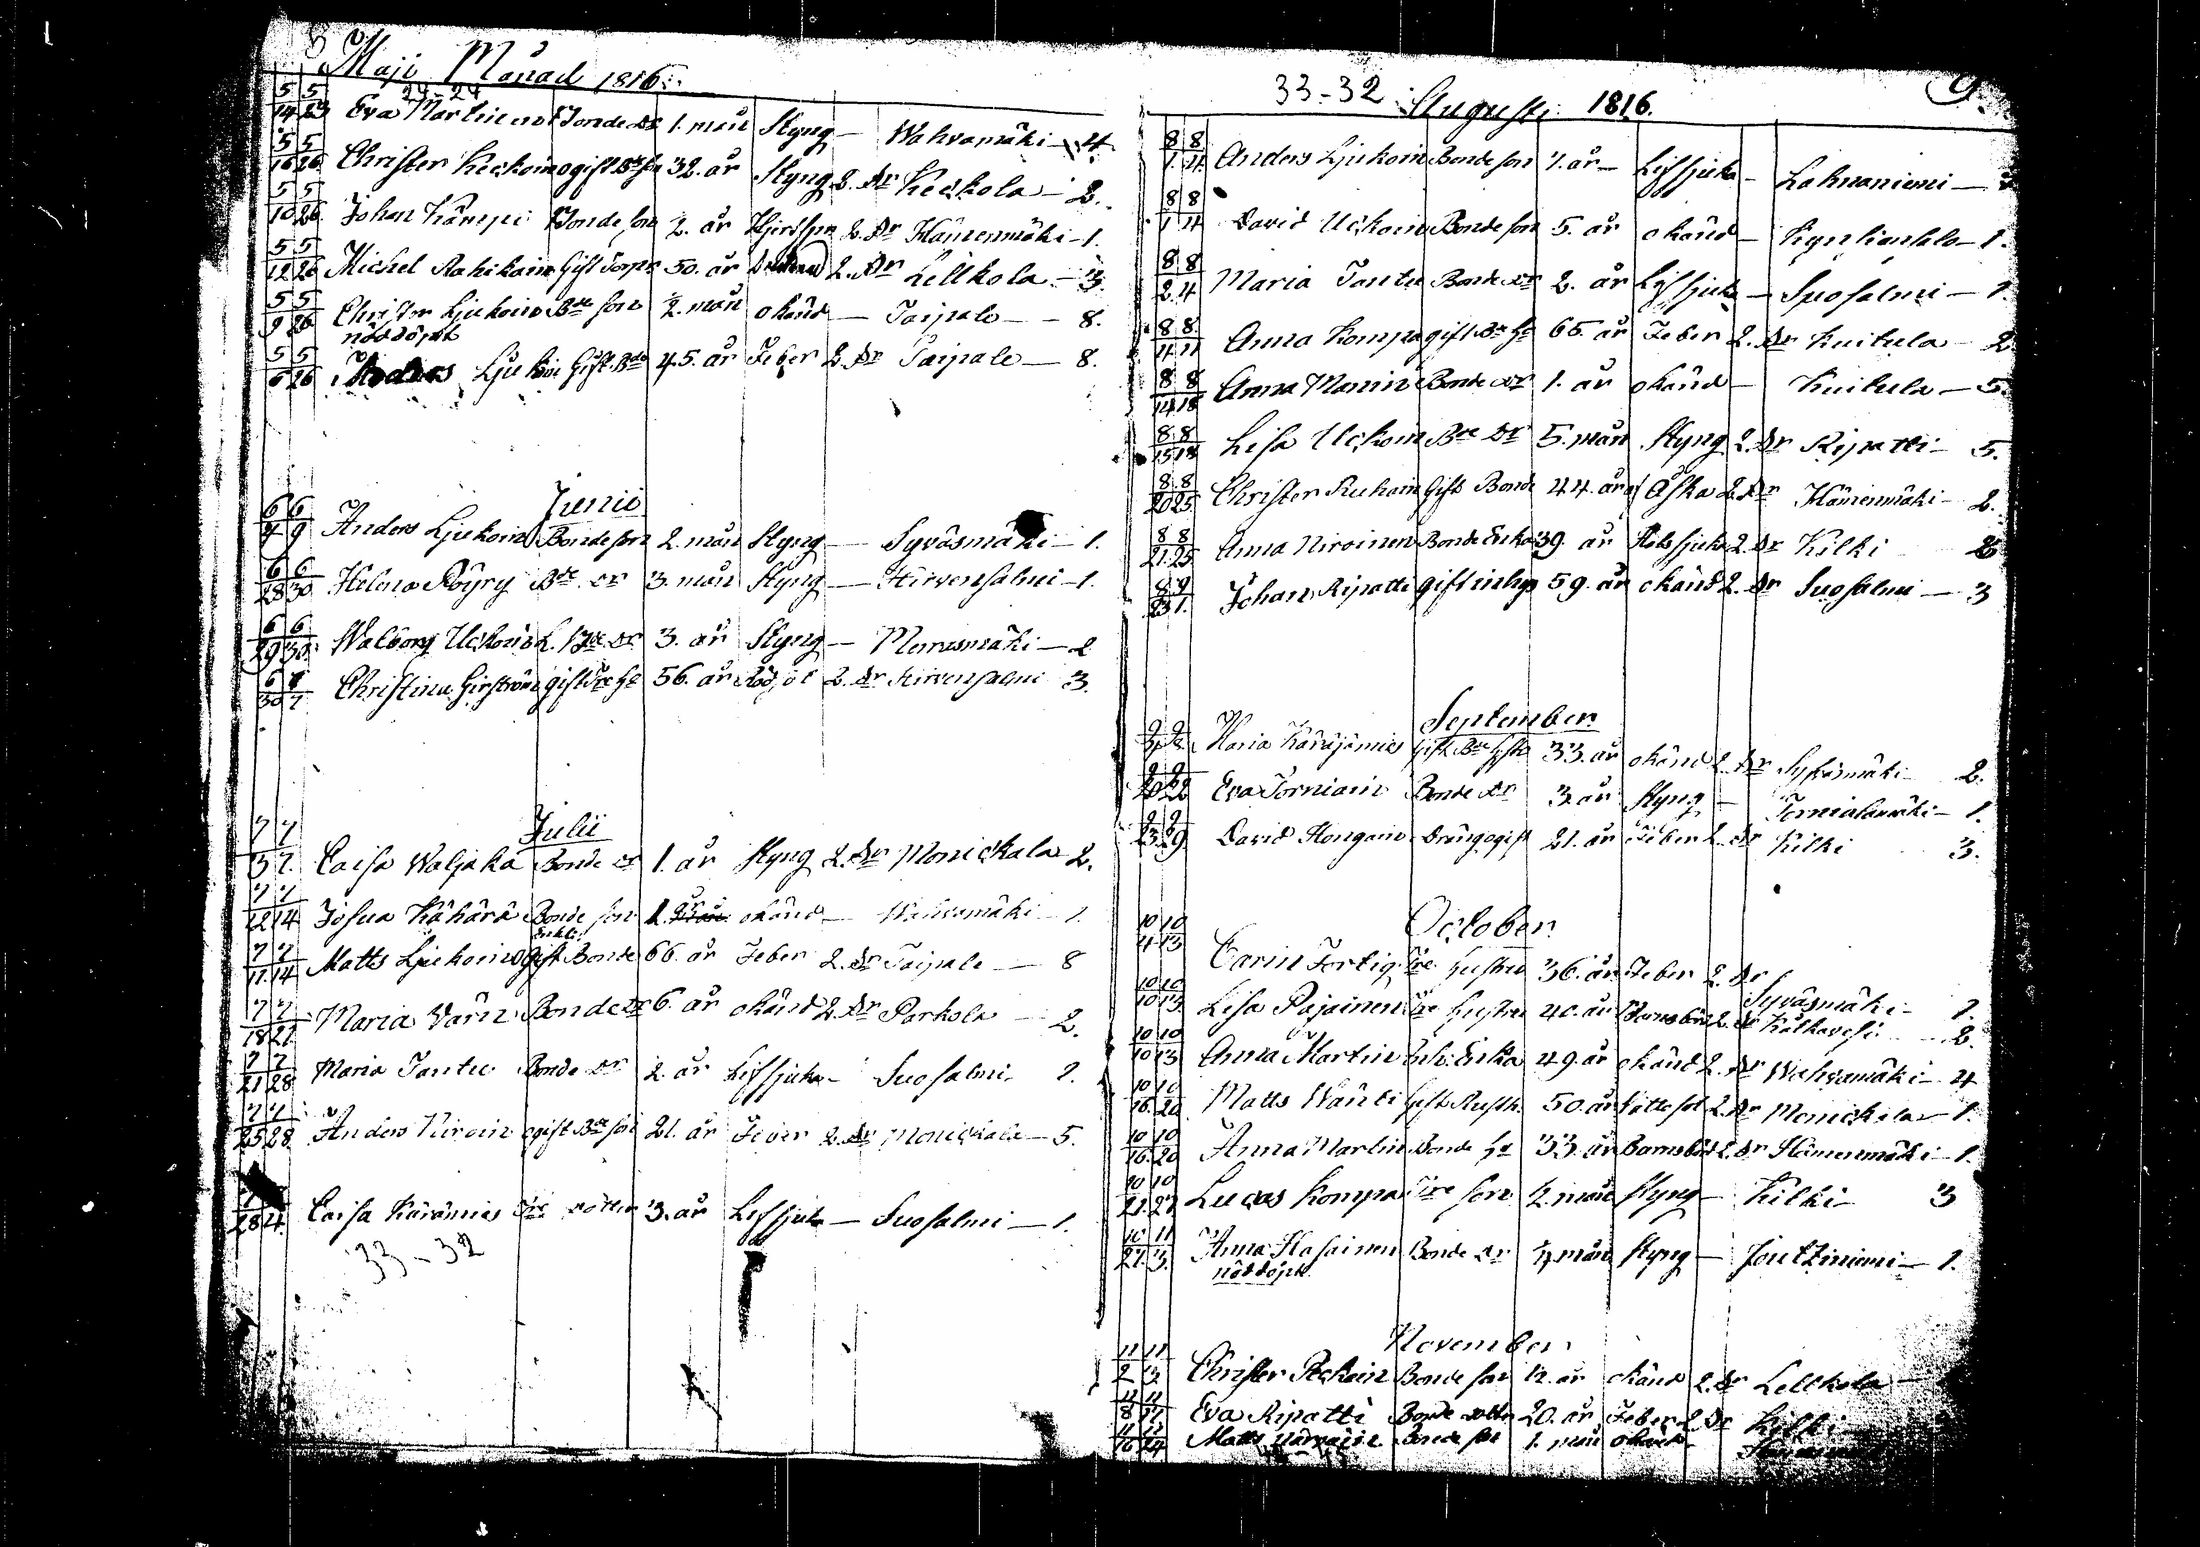 Maji Månad 1816.
5/14 5/23 Eva Martin Bonde dr 1. mån Styng — Wahvamäki — 4.
5/16 5/26 Christer Keckoin ogift Bde son 32. år Styng 2. dr Keckola — 2.
5/10 5/26 Johan Kämpi Bonde son 2. år 2. dr Hämenmäki — 1.
5/12 5/26 Michel Rahikain Gift Torpr 50. år 2. dr Lellkola — 3.
5/9 5/26 Christer Ljukoin Bde son 2. mån okänd — Taipale — 8.
nöddöpt
5/6 5/26 Anders Ljukoin Gift Bde 45. år Feber 2. dr Taipale — 8.
Junii
6/4 6/9 Anders Ljukoin Bonde son 2. mån Styng — Syväsmäki — 1.
6/28 6/30 Helena Röyry Bde dr 3. mån Styng — Hirvensalmi — 1.
6/29 6/30 Walborg Uckoin Bde dr 3. år Styng — — 2
6/30 7/7 Christina gift hu 56. år Rödsot 2. dr Hirvensalmi 3.
Julii
7/3 7/7. Caisa Waljaka Bonde dr 1. år Styng 2. dr Monickala 2.
7/12 7/14 Josua Kähärä Bonde son 1. år okänd — Wahvamäki — 1.
Enkl.
7/11 7/14 Matts Ljukoin Gift Bonde 66. år Feber 2. dr Taipale — 8
7/18 7/21 Maria Värn Bonde dr 6. år okänd 2. dr Parkola — 2.
7/21 7/28 Maria Tantu Bonde dr 2. år Lifsjuka — Suosalmi — 1.
7/25 7/28 Anders Niroin ogift Bde son 21. år Feber 2. dr Monickala — 5.
28 4. Caisa Kärämies dotter 3. år Lifsjuka — Suosalmi — 1.
33 - 32
33 - 32 Augusti 1816. 9.
8/1 8/4 Anders Ljukoin Bonde son 7. år — Lifsjuka — Lahnaniemi —
8/1 8/4 David Uckoin Bonde son 5. år okänd — Kyntiansalo — 1.
8/2 8/4 Maria Tantu Bonde dr 2. år Lifsjuka — Suosalmi — 1.
8/4 8/11 Anna Kompa gift Bde hu 65. år Feber 2. dr Kuitula — 2
8/14 8/18 Anna Manin Bonde dr 1. år okänd — Kuitula — 5.
8/15 8/18 Lisa Uckoin Bde dr 5. mån Styng 2. dr Ripatti — 5.
8/20 8/25 Christer Ruhoin Gift Bonde 44. år af Åska 2. dr Hämenmäki — 2.
8/21 8/25 Anna Niroinen Bonde Enka 39. år Halssjuka 2. dr Kilki
8/23 9/1. Johan Ripatti gift inhys 59. år okänd 2. dr Suosalmi — 3
September
Maria Käräjämies Gift Bde hustr 33. år okänd 2. dr Syväsmäki 2.
9/20 9/22 Eva Torniain Bonde dr 3 år Styng — Tornialanmäki — 1.
9/23 9/29 David Hongain Dräng ogift 21. år Feber 2. dr Kilki 3.
October
10/4 10/13 Carin Fortig hustru 36. år Feber 2. dr Syväsmäki — 1.
10/10 10/13 Lisa Pajainen hustru 40. år Barnsbörd 2. dr Kälkävesi — 2.
10/10 10/13 Anna Martin Inh. Enka 49. år okänd 2. dr Wahvamäki — 4
10/16 10/20 Matts Wänti Gift Rusth. 50. år 2. dr Monickala — 1.
10/16 10/20 Anna Martin Bonde hu 33. år Barnsbörd 2. dr Hämenmäki — 1.
10/21 10/27 Lucas Kompa son 2. mån Styng — Kilki — 3
10/27 11/3 Anna Hasainen Bonde dr mån Styng — Joutziniemi — 1.
nöddöpt
November
11/2 11/3 Christer Bonde son 12. år okänd 2. dr Lellkola
11/8 11/17 Eva Ripatti Bonde dotter 20. år Feber 2. dr Kilki
11/16 11/24 Matts Bonde son 1. mån okänd